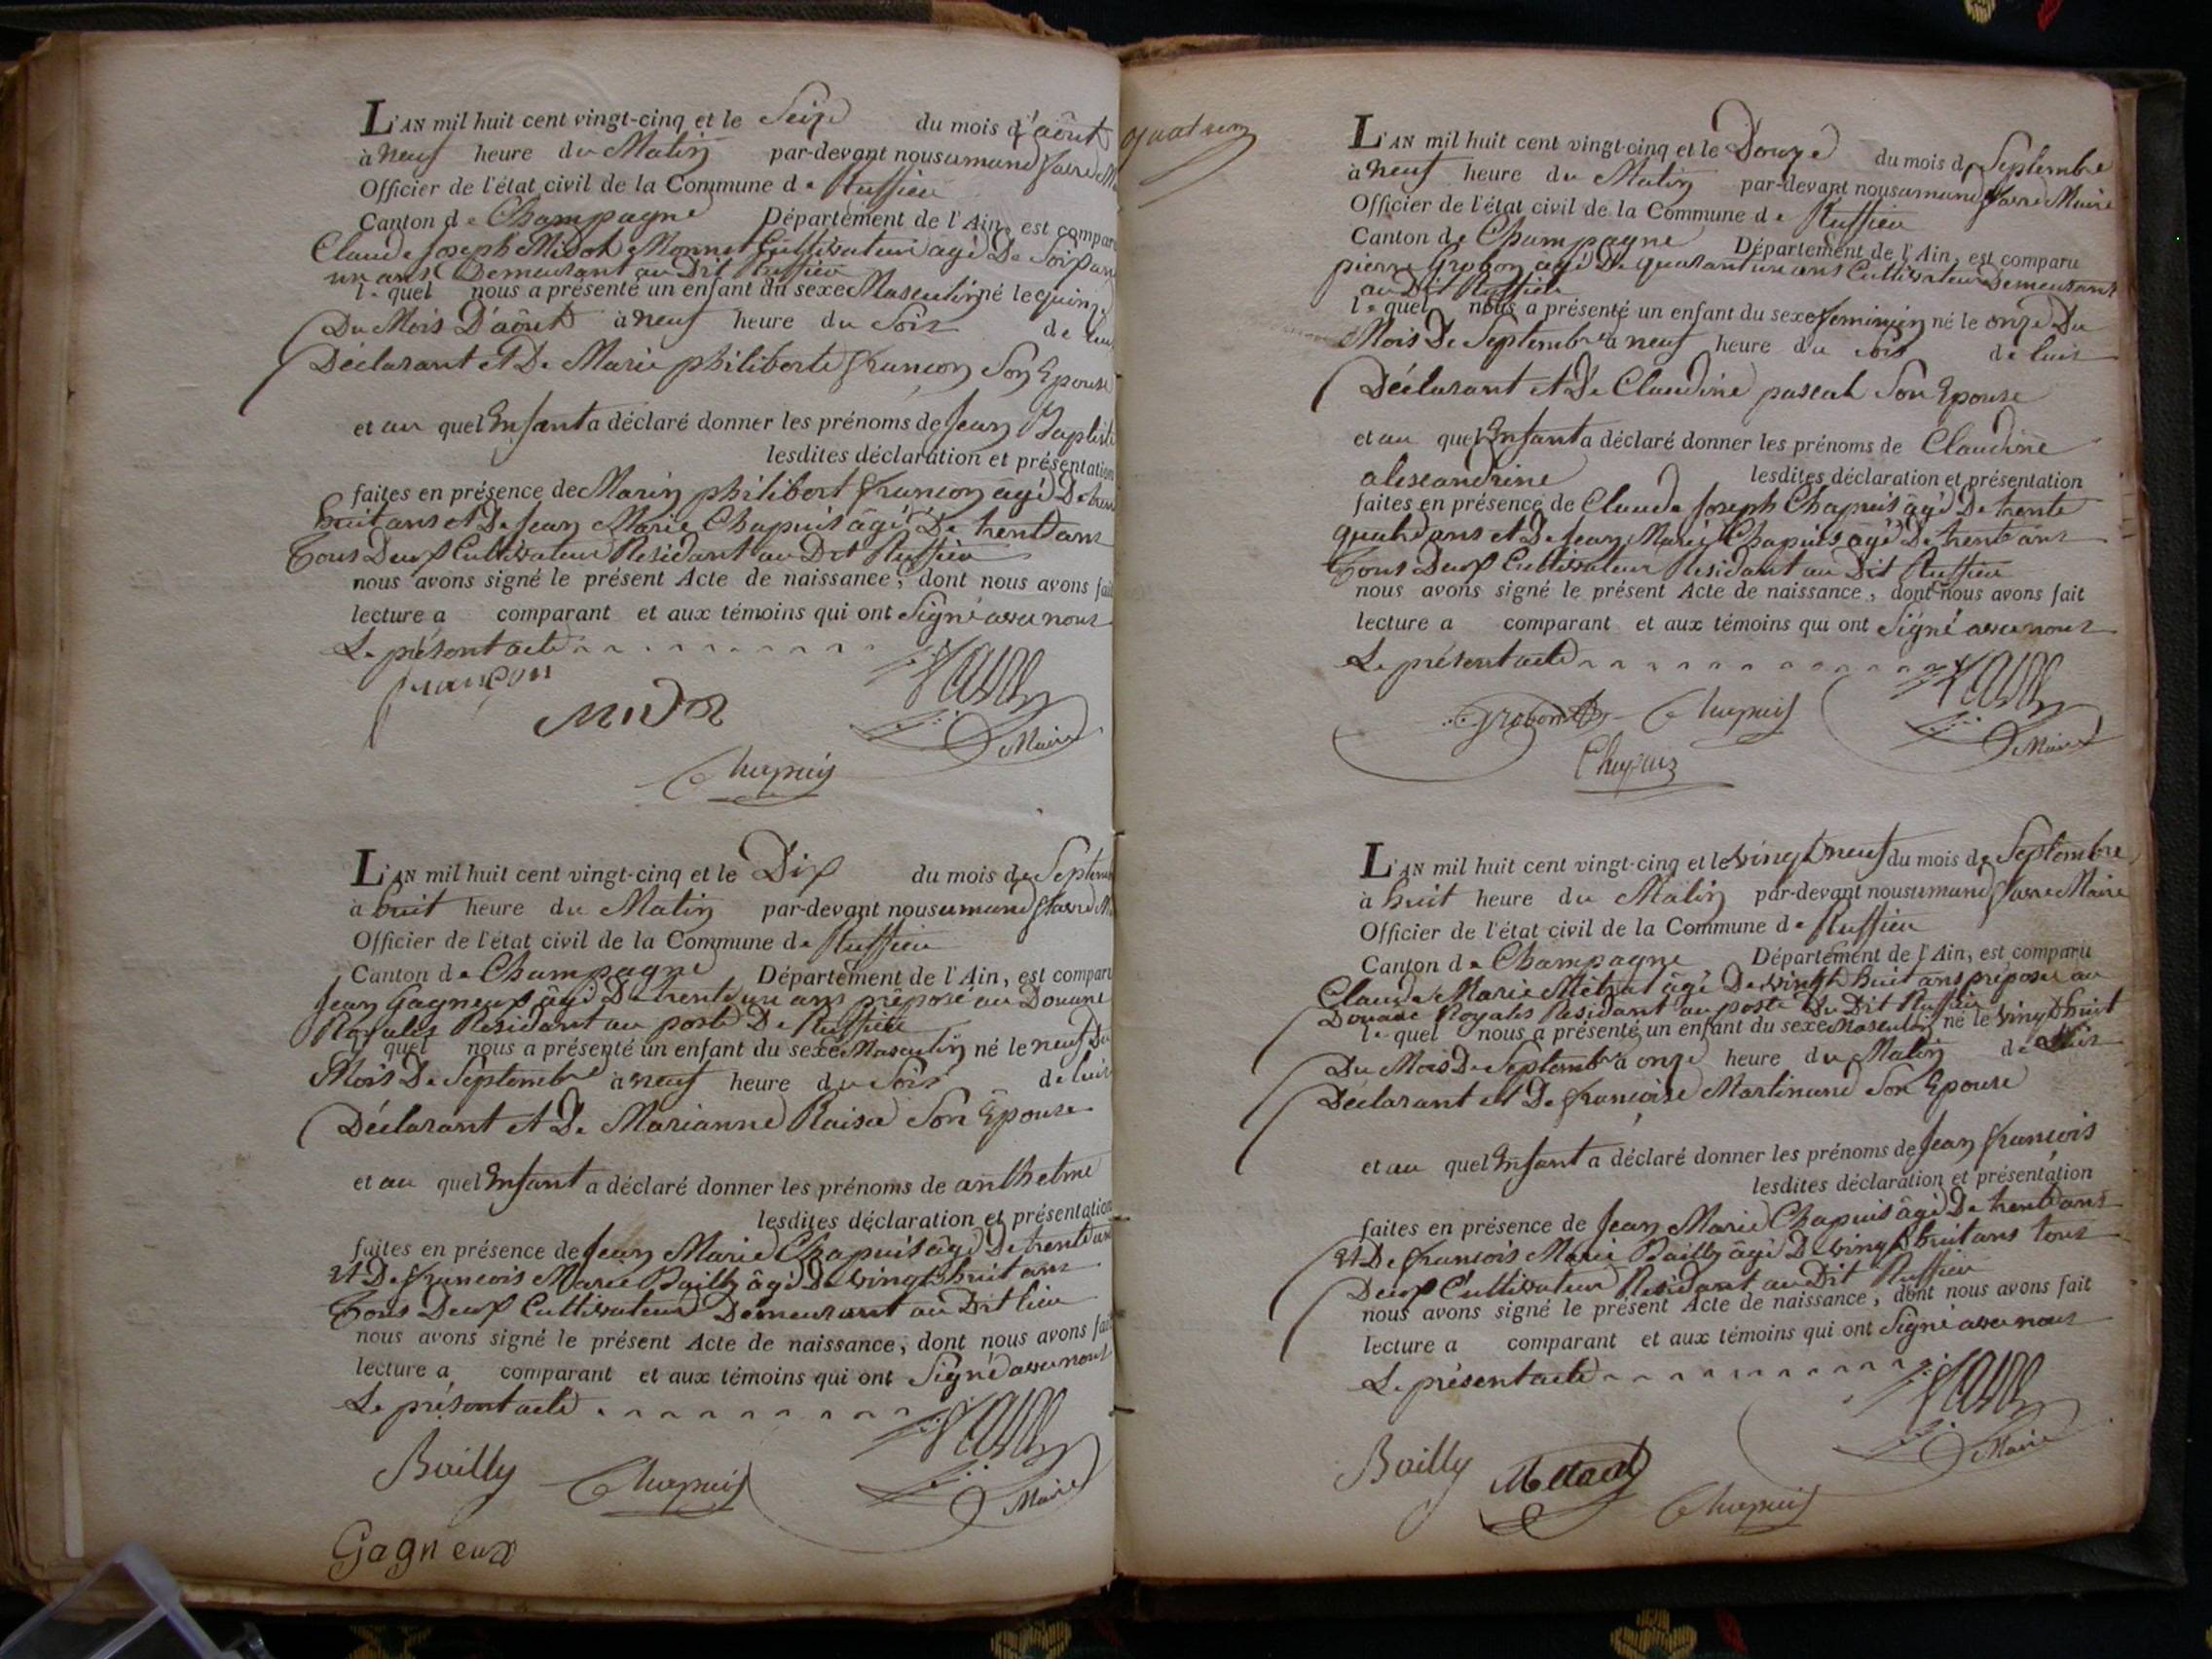 L'AN mil huit cent vingt-cinq et le Seize du mois d'août
à neuf heure du Matin par-devant nous amand favre
Officier de l'état civil de la Commune de Ruffieu
Canton de Champagne Département de l'Ain, est compar
Claude Joseph Midol Monnet Cultivateur âgé De
un ans Demeurant au Dit Ruffieu
le quel nous a présenté un enfant du sexe Masculin né le quinze
Du Mois D'août à neuf heure du Soir de lui
Déclarant et De Marie philiberte françon Son Epouse
et au quel Enfant a déclaré donner les prénoms de Jean Baptiste
lesdites déclaration et présentation
faites en présence de Marin philibert françon âgé De
huit ans et De Jean Marie Chapuis âgé De trente ans
Tous Deux Cultivateur Residant au Dit Ruffieu
nous avons signé le présent Acte de naissance, dont nous avons fait
lecture a comparant et aux témoins qui ont Signé avec nous
Le présent acte
françon
Midol
favre
Maire
Chapuis
L'AN mil huit cent vingt-cinq et le Dix du mois de Septemb
à huit heure du Matin par-devant nous amand favre
Officier de l'état civil de la Commune de Ruffieu
Canton de Champagne Département de l'Ain, est comparu
Jean Gagneux âgé De trente un ans préposé au Douane
Royales Residant au poste De Ruffieu
quel nous a présenté un enfant du sexe Masculin né le neuf Du
Mois De Septembre à neuf heure du Soir de luis
Déclarant et De Marianne Son Epouse
et au quel Enfant a déclaré donner les prénoms de anthelme
lesdites déclaration et présentation
faites en présence de Jean Marie Chapuis âgé De trente ans
Et De françois Marie Bailly âgé De vingt huit ans
Tous Deux Cultivateur Demeurant au Dit lieu
nous avons signé le présent Acte de naissance, dont nous avons fait
lecture a comparant et aux témoins qui ont Signé avec nous
Le présent acte
favre
Maire
Bailly Chapuis
Gagneux
L'AN mil huit cent vingt-cinq et le Douze du mois de Septembre
à neuf heure du Matin par-devant nous amand favre Maire
Officier de l'état civil de la Commune de Ruffieu
Canton de Champagne Département de l'Ain, est comparu
pierre Grobon âgé De quarante un ans Cultivateur Demeurant
au Dit Ruffieu
le quel nous a présenté un enfant du sexe feminin né le onze Du
Mois De Septembre à neuf heure du soir de luis
Déclarant et De Claudine pascal Son Epouse
et au quel Enfant a déclaré donner les prénoms de Claudine
alexandrine lesdites déclaration et présentation
faites en présence de Claude Joseph Chapuis âgé De trente
quatre ans et De Jean Marie Chapuis âgé De trente ans
Tous Deux Cultivateur Residant au Dit Ruffieu
nous avons signé le présent Acte de naissance, dont nous avons fait
lecture a comparant et aux témoins qui ont Signé avec nous
Le présent acte
Grobon Chapuis
favre
Maire
Chapuis
L'AN mil huit cent vingt-cinq et le vingt neuf du mois de Septembre
à huit heure du Matin par-devant nous amand favre Maire
Officier de l'état civil de la Commune de Ruffieu
Canton de Champagne Département de l'Ain, est comparu
Claude Marie âgé De vingt huit ans préposé au
Douane Royales Residant au poste Du Dit Ruffieu
le quel nous a présenté un enfant du sexe Masculin né le vingt huit
Du Mois De Septembre à onze heure du Matin de luis
Déclarant et De françoise Martinand Son Epouse
et au quel Enfant a déclaré donner les prénoms de Jean françois
lesdites déclaration et présentation
faites en présence de Jean Marie Chapuis âgé De trente ans
Et De françois Marie Bailly âgé De vingt huit ans tous
Deux Cultivateur Residant au Dit Ruffieu
nous avons signé le présent Acte de naissance, dont nous avons fait
lecture a comparant et aux témoins qui ont Signé avec nous
Le présent acte
favre
Maire
Bailly
Chapuis